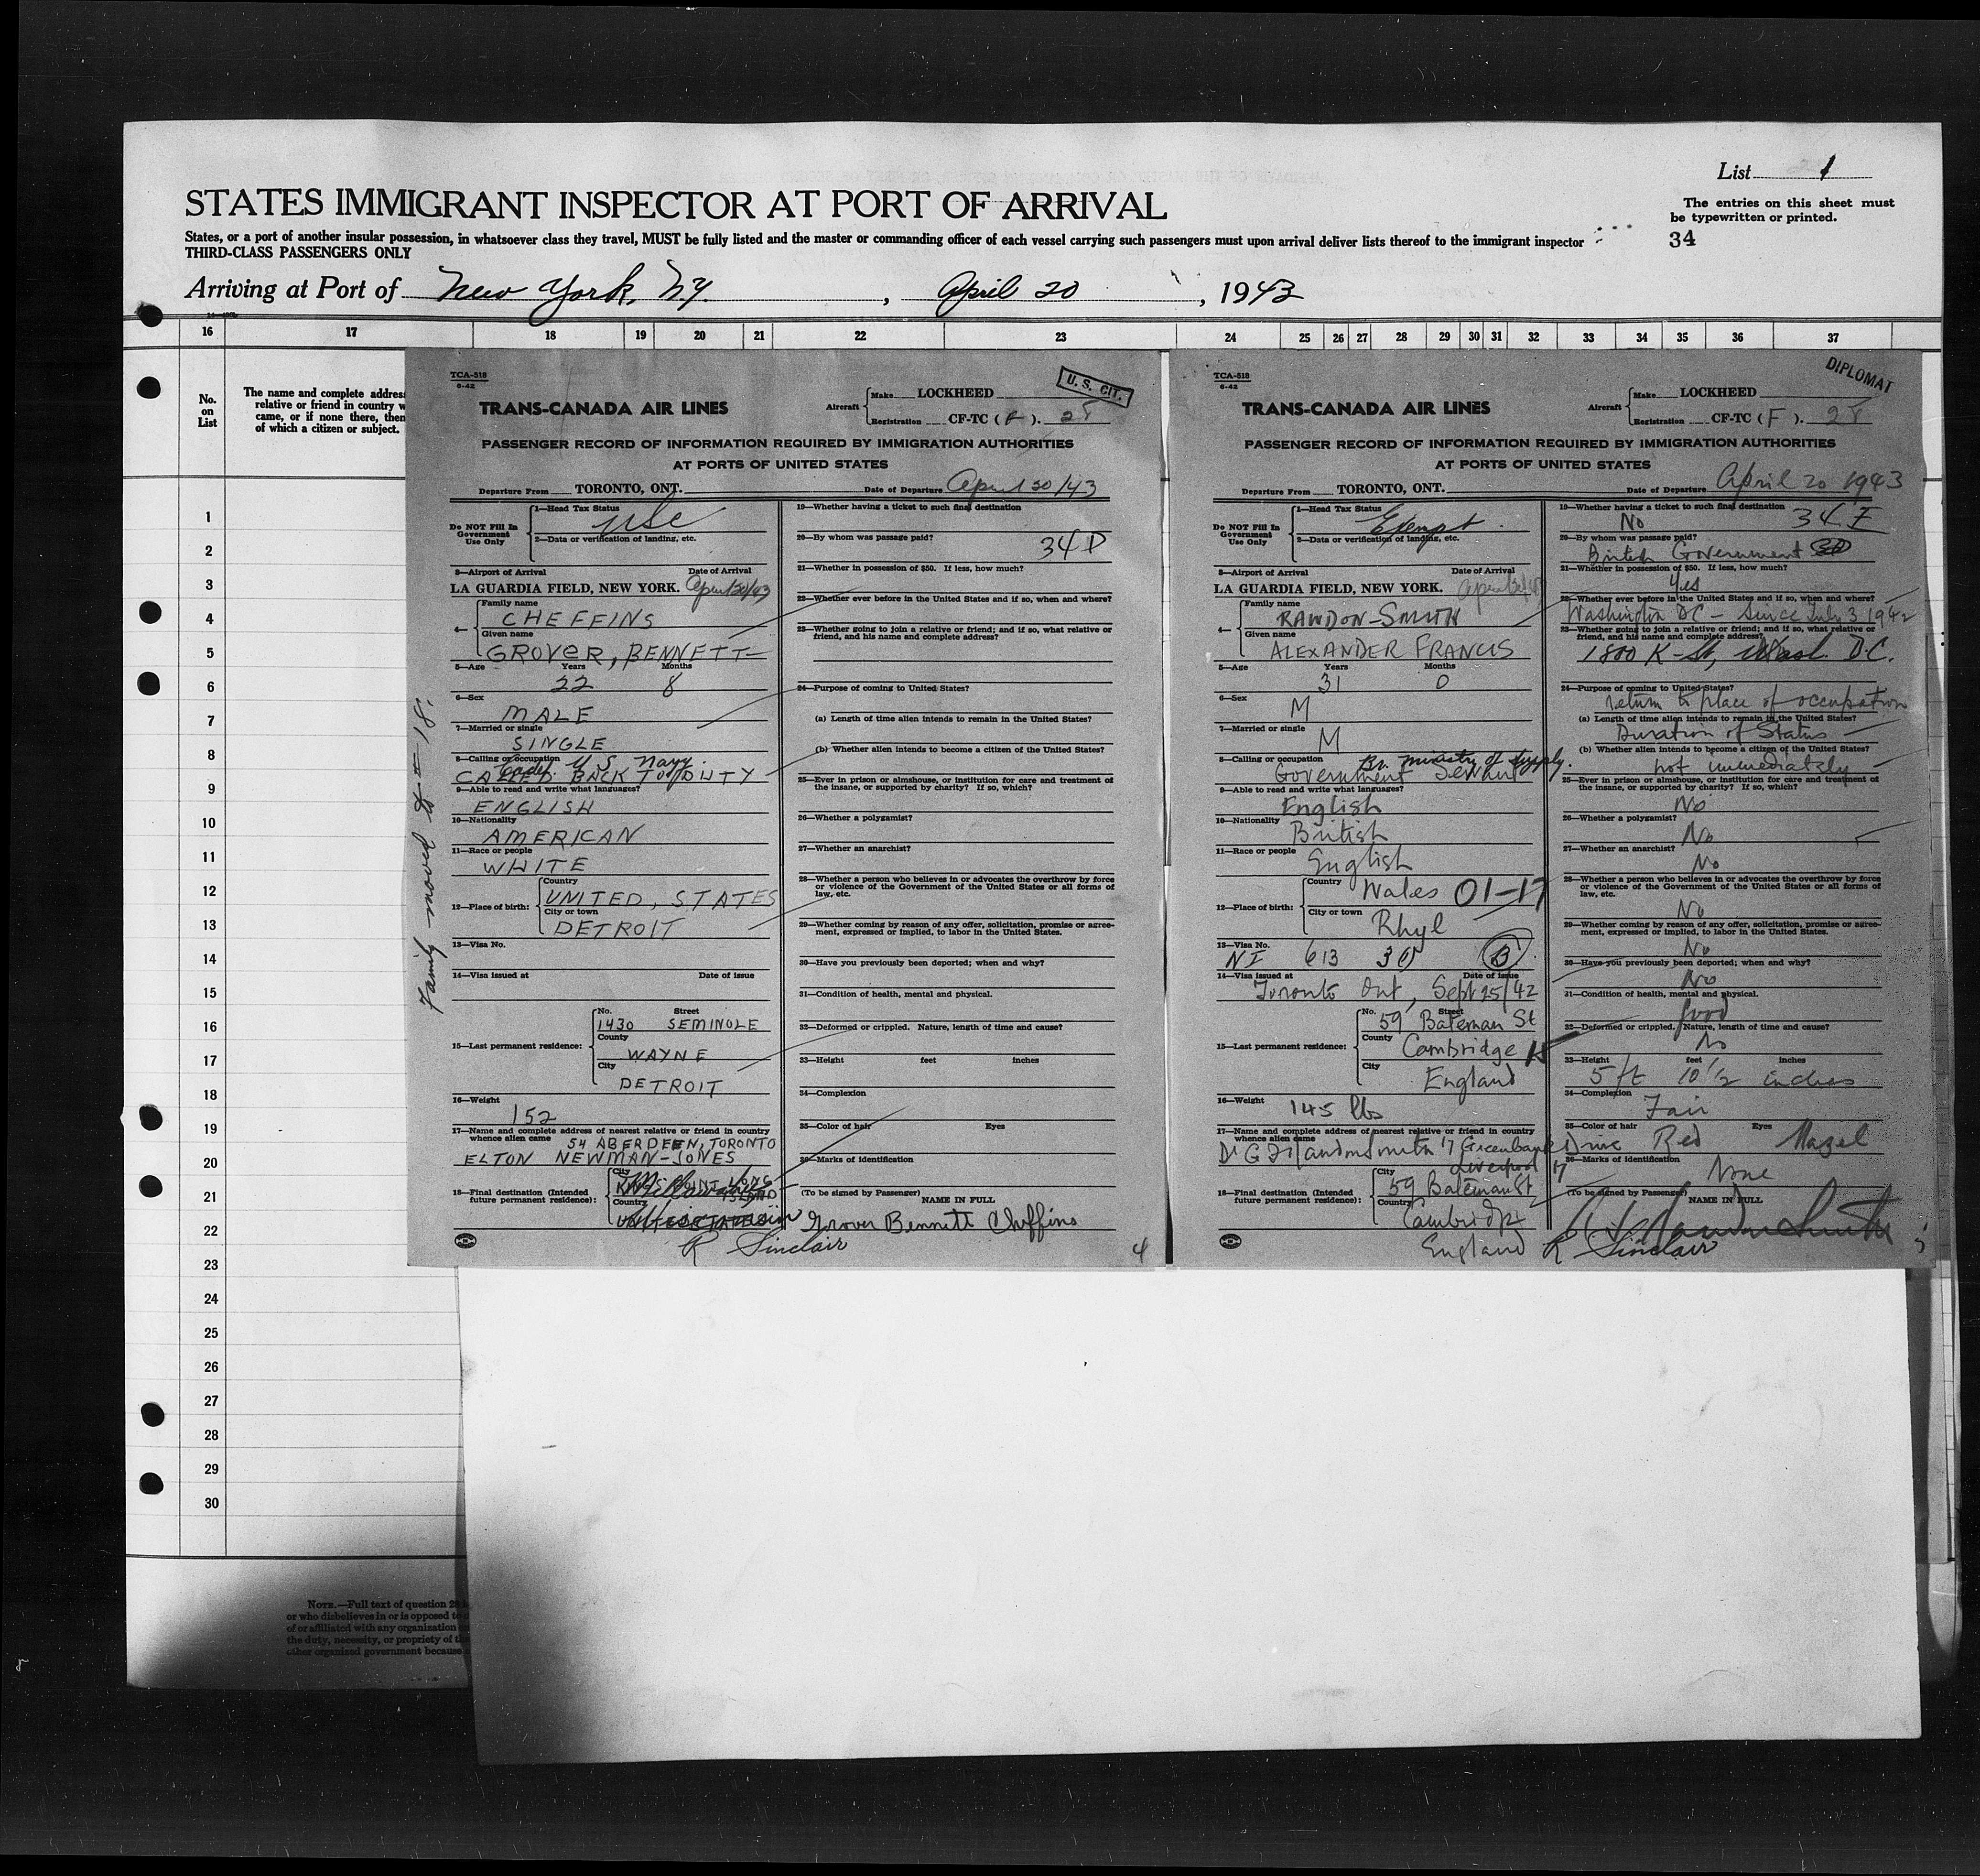 List 1
STATES IMMIGRANT INSPECTOR AT PORT OF ARRIVAL
The entries on this sheet must
be typewritten or printed.
States, or a port of another insular possession, in whatsoever class they travel, MUST be fully listed and the master or commanding officer of each vessel carrying such passengers must upon arrival deliver lists thereof to the immigrant inspector
THIRD-CLASS PASSENGERS ONLY
34
Arriving at Port of New York, N.Y., April 20, 1943
16 17 18 19 20 21 22 23 24 25 26 27 28 29 30 31 32 33 34 35 36 37
No.
on
List
The name and complete address
relative or friend in country w
came, or if none there, then
of which a citizen or subject.
1
2
3
4
5
6
7
8
9
10
11
12
13
14
15
16
17
18
19
20
21
22
23
24
25
26
27
28
29
30
NOTE.—Full text of question 28
or who disbelieves in or is opposed to
of or affiliated with any organization
the duty, necessity, or propriety of th
other organized government because
Family moved to 18.
TCA-518
6-42
U. S. CIT.
TRANS-CANADA AIR LINES
Aircraft
Make LOCKHEED
Registration CF-TC (F).
PASSENGER RECORD OF INFORMATION REQUIRED BY IMMIGRATION AUTHORITIES
AT PORTS OF UNITED STATES
Departure From TORONTO, ONT. Date of Departure April 20/43
Do NOT Fill In
Government
Use Only
1—Head Tax Status
USC
2—Data or verification of landing, etc.
3—Airport of Arrival Date of Arrival
LA GUARDIA FIELD, NEW YORK. April 20/43
4—
Family name
CHEFFINS
Given name
GROVER, BENNETT
5—Age Years Months
22 8
6—Sex
MALE
7—Married or single
SINGLE
8—Calling or occupation
Cadet U.S. Navy
CALLED BACK TO DUTY
9—Able to read and write what languages?
ENGLISH
10—Nationality
AMERICAN
11—Race or people
WHITE
12—Place of birth:
Country
UNITED, STATES
City or town
DETROIT
13—Visa No.
14—Visa issued at Date of issue
15—Last permanent residence:
No. Street
1430 SEMINOLE
County
WAYNE
City
DETROIT
16—Weight
152
17—Name and complete address of nearest relative or friend in country
whence alien came 54 ABERDEEN, TORONTO
ELTON NEWMAN-JONES
18—Final destination (Intended
future permanent residence):
City
Country
R Sinclair
19—Whether having a ticket to such final destination
34 D
20—By whom was passage paid?
21—Whether in possession of $50. If less, how much?
22—Whether ever before in the United States and if so, when and where?
23—Whether going to join a relative or friend; and if so, what relative or
friend, and his name and complete address?
24—Purpose of coming to United States?
(a) Length of time alien intends to remain in the United States?
(b) Whether alien intends to become a citizen of the United States?
25—Ever in prison or almshouse, or institution for care and treatment of
the insane, or supported by charity? If so, which?
26—Whether a polygamist?
27—Whether an anarchist?
28—Whether a person who believes in or advocates the overthrow by force
or violence of the Government of the United States or all forms of
law, etc.
29—Whether coming by reason of any offer, solicitation, promise or agree-
ment, expressed or implied, to labor in the United States.
30—Have you previously been deported; when and why?
31—Condition of health, mental and physical.
32—Deformed or crippled. Nature, length of time and cause?
33—Height feet inches
34—Complexion
35—Color of hair Eyes
36—Marks of identification
(To be signed by Passenger) NAME IN FULL
Grover Bennett Cheffins
4
TCA-518
6-42
DIPLOMAT
TRANS-CANADA AIR LINES
Aircraft
Make LOCKHEED
Registration CF-TC (F).
PASSENGER RECORD OF INFORMATION REQUIRED BY IMMIGRATION AUTHORITIES
AT PORTS OF UNITED STATES
Departure From TORONTO, ONT. Date of Departure April 20 1943
Do NOT Fill In
Government
Use Only
1—Head Tax Status
Exempt
2—Data or verification of landing, etc.
3—Airport of Arrival Date of Arrival
LA GUARDIA FIELD, NEW YORK. April 20/43
4—
Family name
RAWDON-SMITH
Given name
ALEXANDER FRANCIS
5—Age Years Months
31 0
6—Sex
M
7—Married or single
M
8—Calling or occupation Br. ministry of Supply.
Government Servant
9—Able to read and write what languages?
English
10—Nationality
British
11—Race or people
English
12—Place of birth:
Country
Wales 01-17
City or town
Rhyl
13—Visa No.
NI 613 3(1) B
14—Visa issued at Date of issue
Toronto Ont, Sept 25/42
15—Last permanent residence:
No. Street
59 Bateman St
County
Cambridge
City
England
16—Weight 145 lbs
17—Name and complete address of nearest relative or friend in country
whence alien came
Dr G F Rawdon Smith 17 Greenbank Drive
Liverpool 17
18—Final destination (Intended
future permanent residence):
City
59 Bateman St
Country
Cambridge
England
R Sinclair
19—Whether having a ticket to such final destination
No 34 F
20—By whom was passage paid?
British Government
21—Whether in possession of $50. If less, how much?
Yes
22—Whether ever before in the United States and if so, when and where?
Washington DC - Since July 3 1942
23—Whether going to join a relative or friend; and if so, what relative or
friend, and his name and complete address?
1800 K-St, Wash. D.C.
24—Purpose of coming to United States?
return to place of occupation
(a) Length of time alien intends to remain in the United States?
Duration of Status
(b) Whether alien intends to become a citizen of the United States?
not immediately
25—Ever in prison or almshouse, or institution for care and treatment of
the insane, or supported by charity? If so, which?
No
26—Whether a polygamist?
No
27—Whether an anarchist?
No
28—Whether a person who believes in or advocates the overthrow by force
or violence of the Government of the United States or all forms of
law, etc.
No
29—Whether coming by reason of any offer, solicitation, promise or agree-
ment, expressed or implied, to labor in the United States.
No
30—Have you previously been deported; when and why?
No
31—Condition of health, mental and physical.
Good
32—Deformed or crippled. Nature, length of time and cause?
No
33—Height feet inches
5 ft 10 1/2 inches
34—Complexion
Fair
35—Color of hair Eyes
Red Hazel
36—Marks of identification
None
(To be signed by Passenger) NAME IN FULL